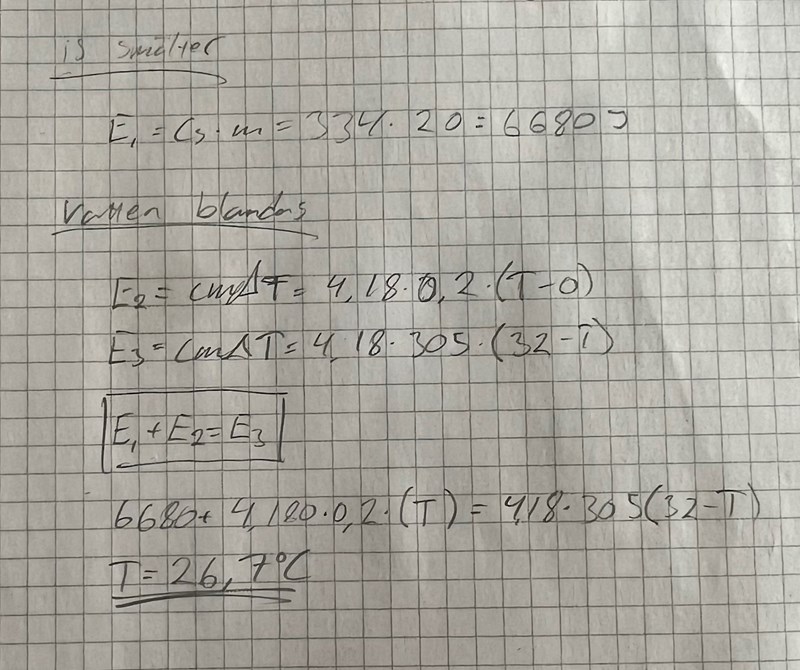 is smälter
E₁ = Cs · m = 334 · 20 = 6680 J
vatten blandas
E₂ = cmΔT = 4,18 · 0,2 · (T-0)
E₃ = cmΔT = 4,18 · 305 · (32-T)
E₁ + E₂ = E₃
6680 + 4,180 · 0,2 · (T) = 4,18 · 305(32-T)
T = 26,7°C